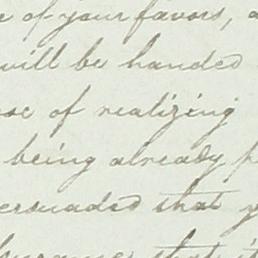 of your favors,
will be handed
of realizing
being already
that
that